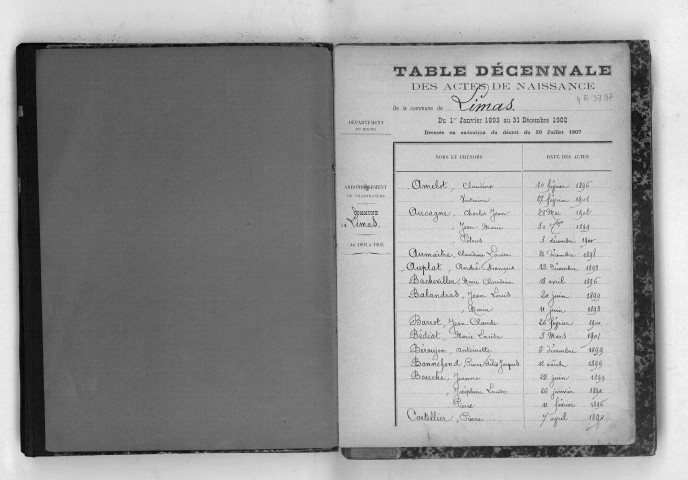 TABLE DÉCENNALE
DES ACTES DE NAISSANCE
4E 3787
De la commune de Limas.
Du 1er Janvier 1893 au 31 Décembre 1902
Dressée en exécution du décret du 20 Juillet 1807
DÉPARTEMENT
DU RHÔNE
ARRONDISSEMENT
DE VILLEFRANCHE
COMMUNE
de Limas.
de 1893 à 1902
NOMS ET PRÉNOMS DATE DES ACTES
Amelot, Claudine 10 février 1896
Antoine 27 février 1901
Aucagne, Charles Jean 22 Mai 1902
Jean Marie 30 7bre 1899
Pétrus 3 décembre 1900
Aumaître, Claudine Louise décembre 1898
Auplat, André François 13 Décembre 1893
Bacheviller, Marie Claudine 18 avril 1896
Balandras, Jean Louis 20 juin 1899
Marie 11 juin 1893
Barrot, Jean Claude 26 février 1900
Bédéat, Marie Louise 3 Mars 1901
Béroujon, Antoinette 5 décembre 1899
Bonnefond, Pierre Félix Jacques 11 août 1899
Bouche, Jeanne 22 juin 1893
Joséphine Louise 26 janvier
Pierre 11 février 1896
Cartillier, Pierre 7 avril